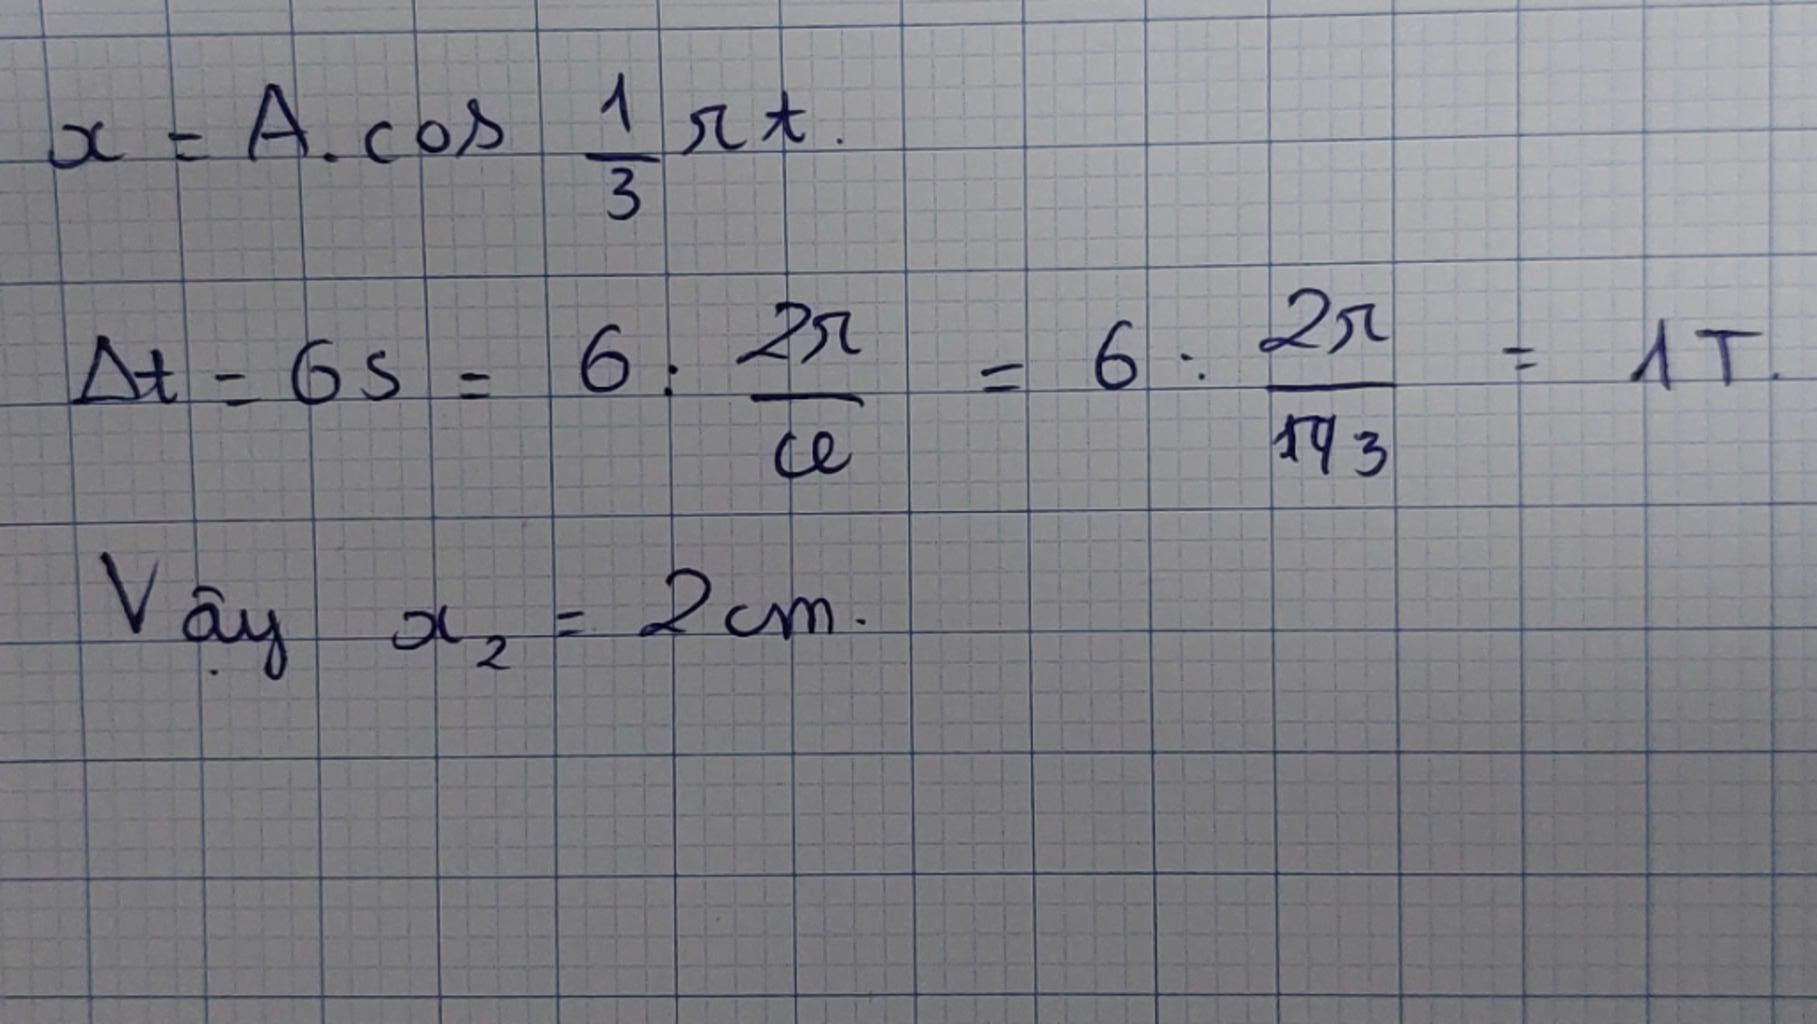 x = A.cos 1/3 πt.
Δt = 6s = 6 : 2π/ω = 6 : 2π/(π/3) = 1T.
Vậy x₂ = 2cm.